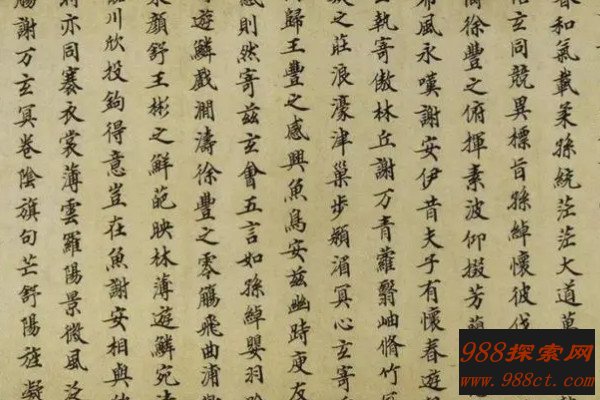 春和氣載柔孫統茫茫大道萬
玄同競異標旨孫綽懷彼伐
徐豐之俯揮素波仰掇芳蘭
希風永嘆謝安伊昔夫子有懷春遊
執寄傲林丘謝万青蘿翳岫脩竹冠
之莊浪濠津巢步潁湄冥心玄寄
歸王豐之感興魚鳥安茲幽時庾友
感則然寄茲玄會五言如孫綽嬰羽
遊鱗戲澗濤徐豐之零觴飛曲浦
顏舒王彬之鮮葩映林薄遊鱗宛
川欣投鉤得意豈在魚謝安相與
時亦同褰衣裳薄雲羅陽景微風泛
觴謝万玄冥卷陰旗句芒舒陽旌凝
988探索网
www.988ct.com